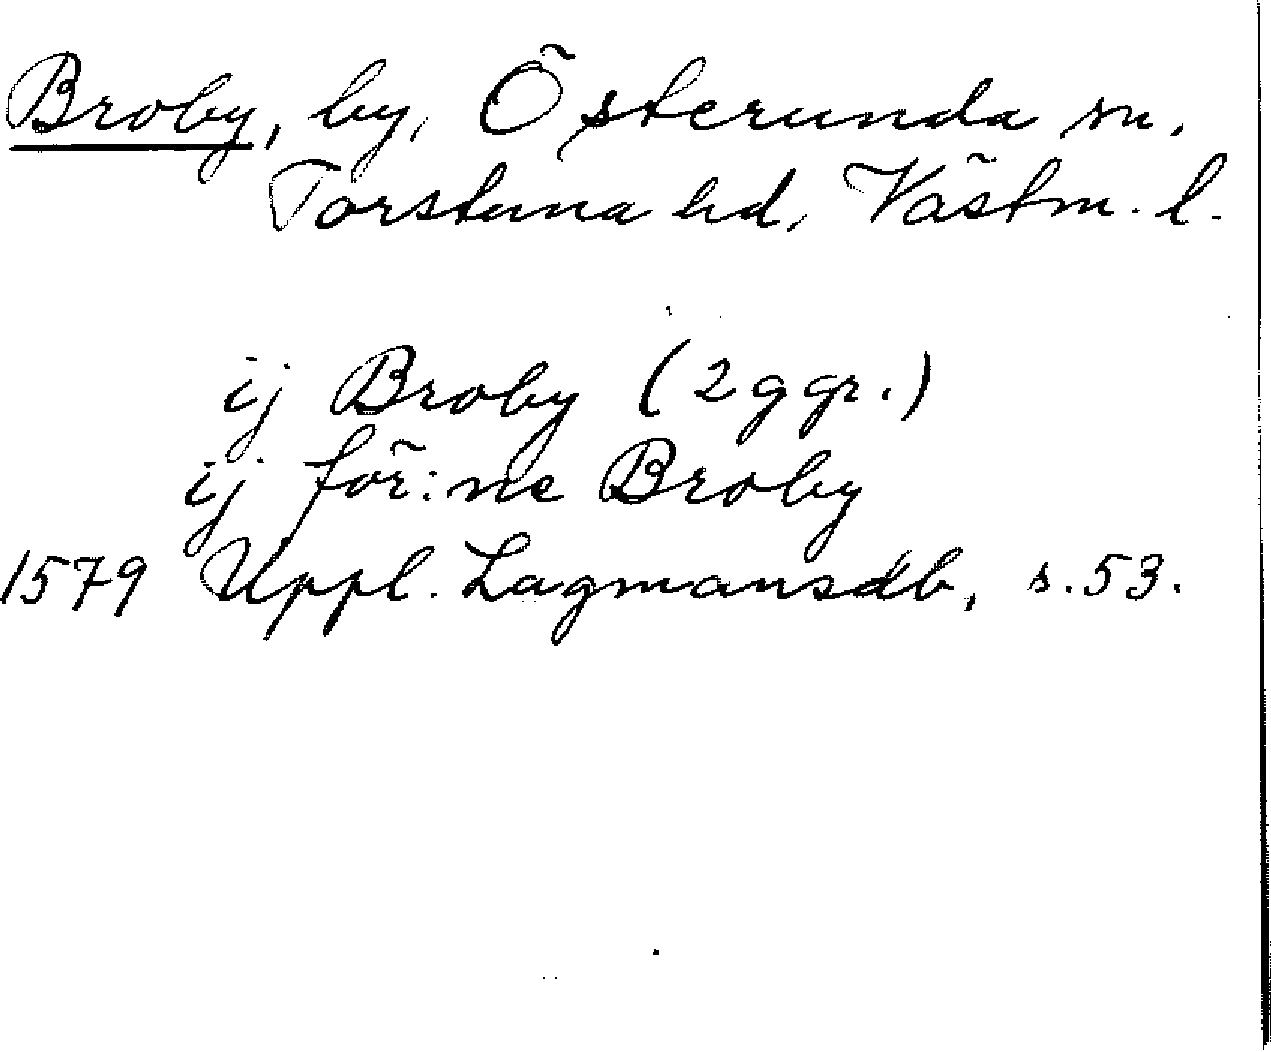 Broby, by, Österunda sn,
Torstuna hd, Västm. l.
ij Broby (2 ggr.)
ij för:ne Broby
1579 Uppl. Lagmansdb, s. 53.